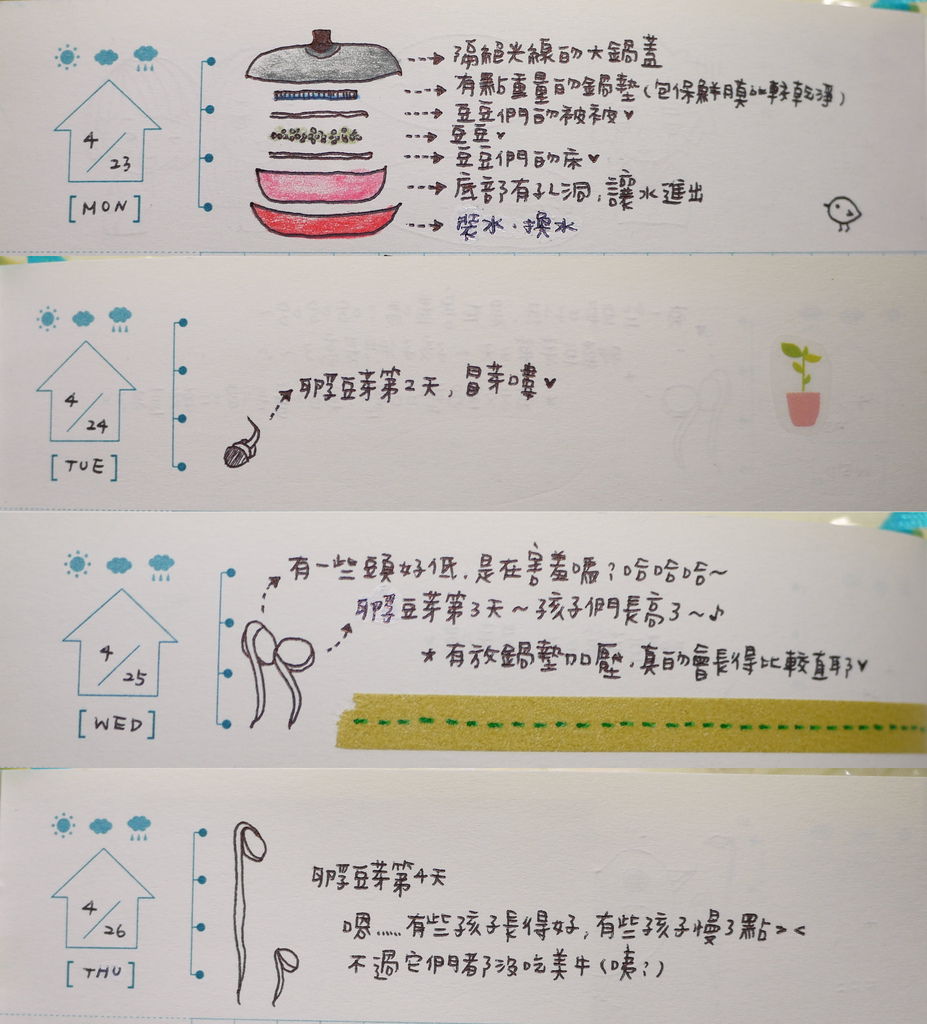 4/23
[MON]
隔絕光線的大鍋蓋
有點重量的鍋墊(包保鮮膜比較乾淨)
豆豆們的被被♥
豆豆♥
豆豆們的床♥
底部有孔洞,讓水進出
裝水.換水
4/24
[TUE]
孵豆芽第2天,冒芽嘍♥
4/25
[WED]
有一些頭好低,是在害羞嗎?哈哈哈~
孵豆芽第3天~孩子們長高了~♪
*有放鍋墊加壓,真的會長得比較直耶♥
4/26
[THU]
孵豆芽第4天
嗯……有些孩子長得好,有些孩子慢了點><
不過它們都沒吃美牛(咦?)